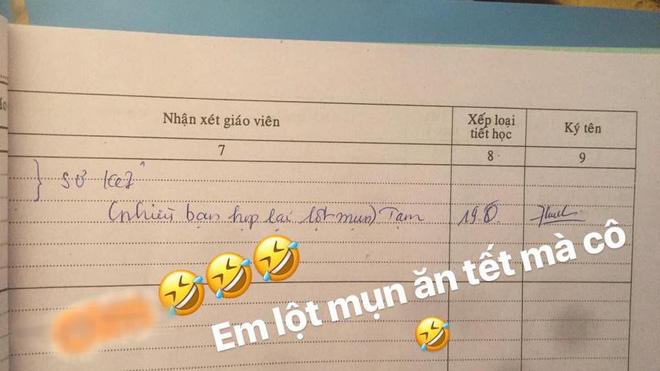 Nhận xét giáo viên
Xếp loại
tiết học
Ký tên
7
8
9
} Sơ kết
(nhiều bạn họp lại lột mụn) Tạm
19.8
Em lột mụn ăn tết mà cô